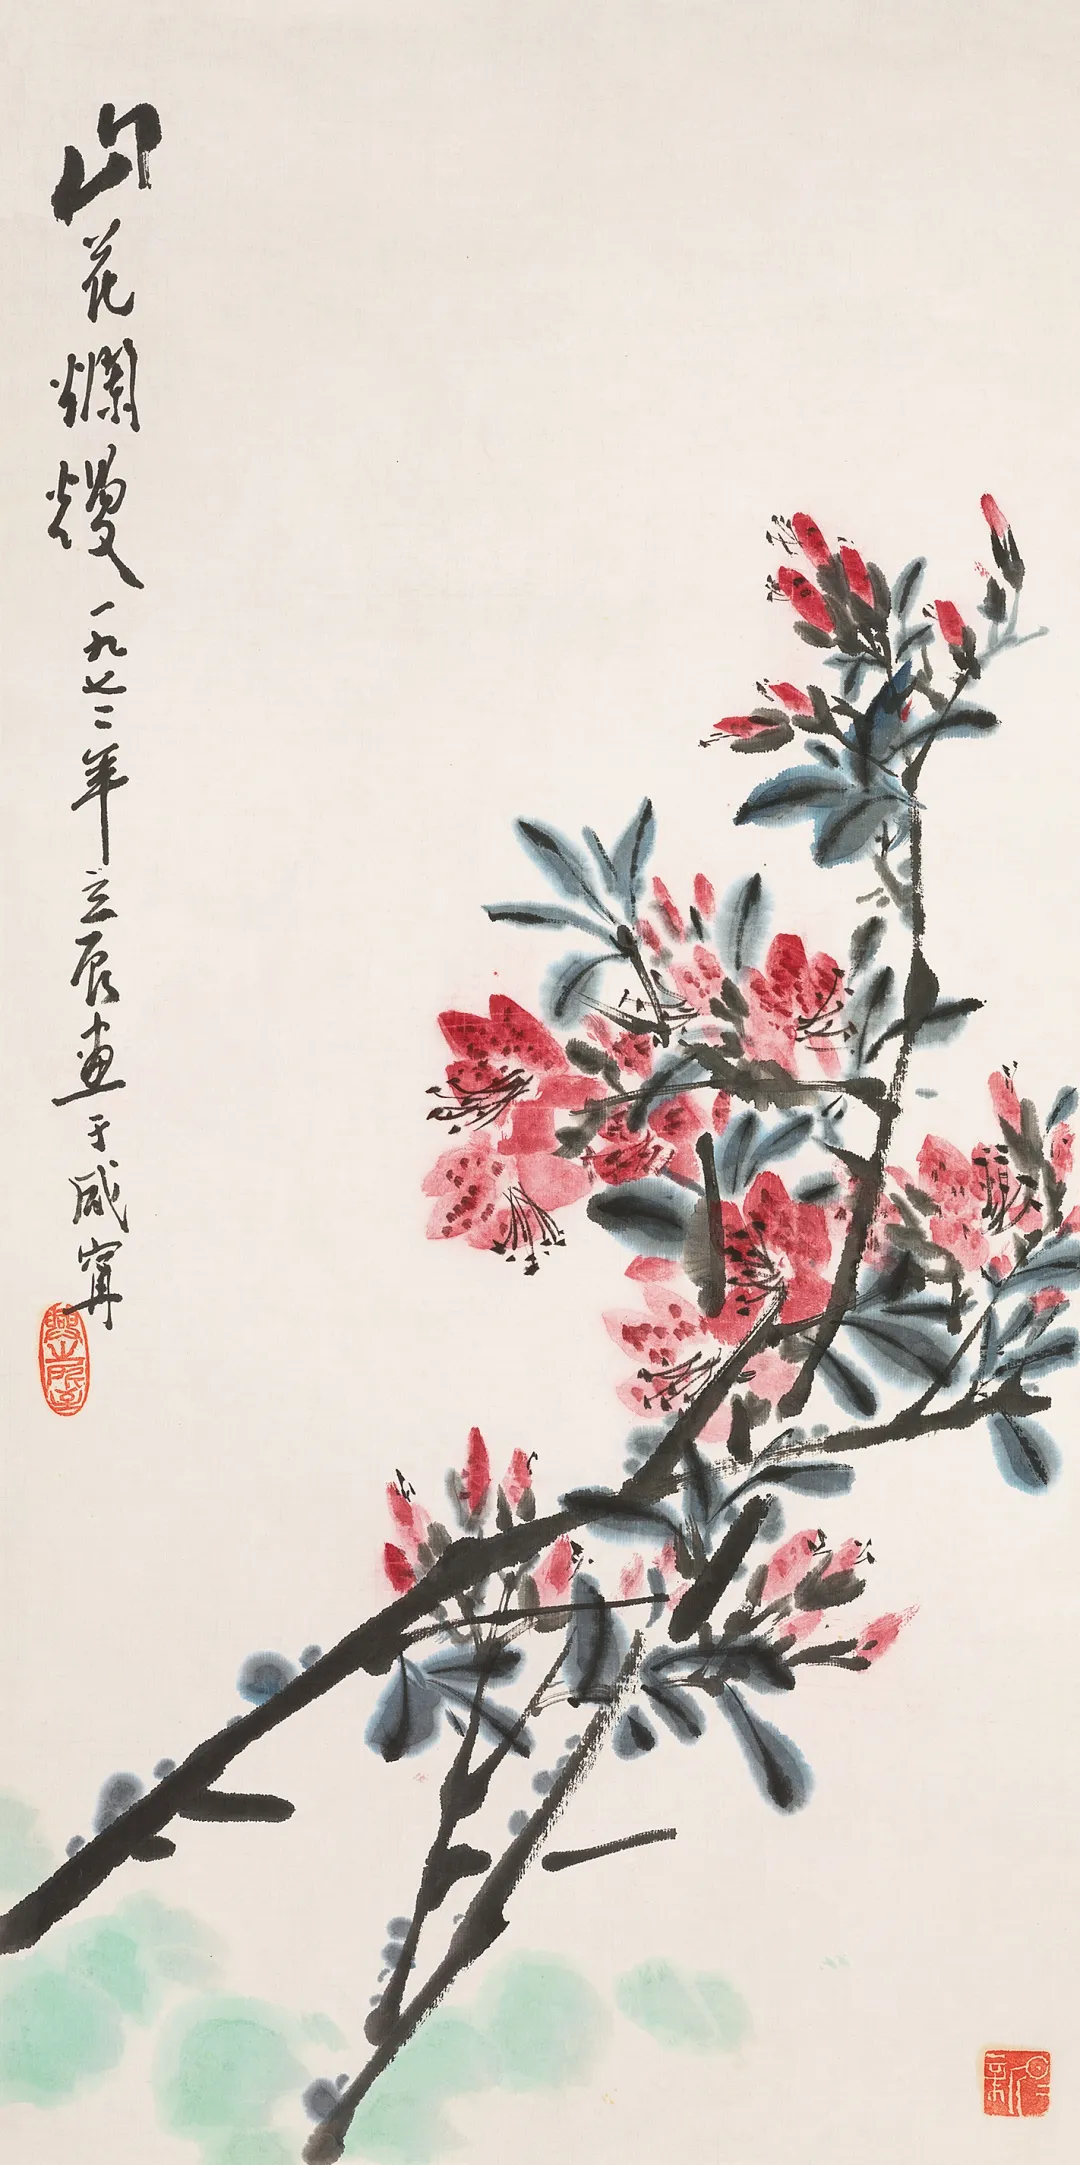 山花爛熳一九七二年立辰画于咸甯